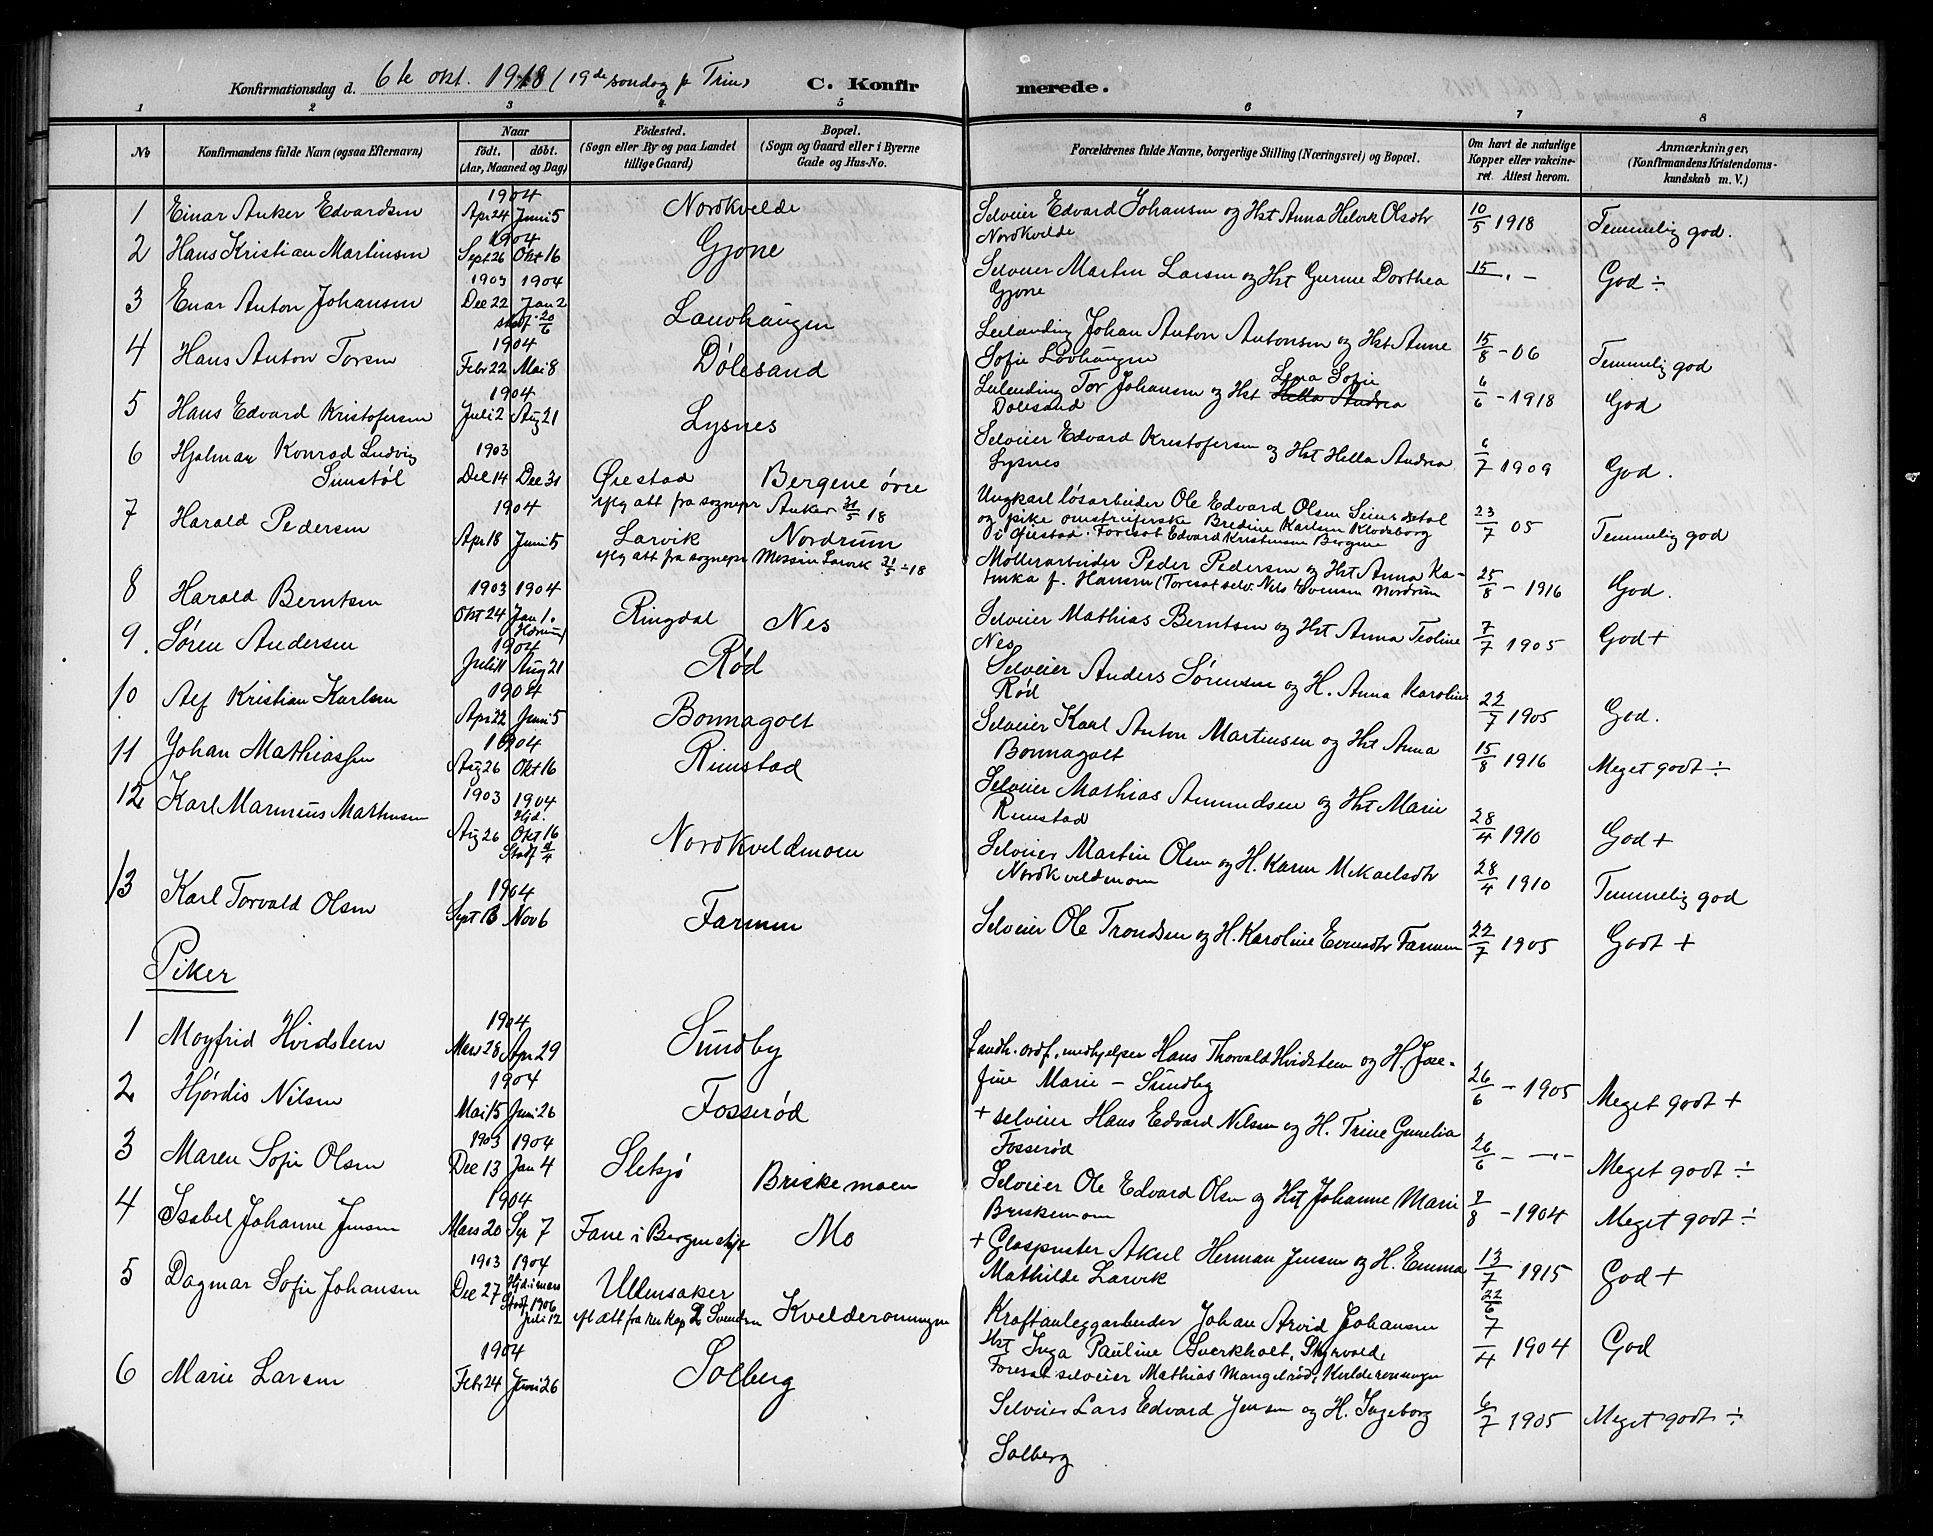 Konfirmationsdag d. 6te okt. 1918 (19de søndag p Trin)
C. Konfirmerede.
1 2 3 4 5 6 7 8
No
Konfirmandens fulde Navn (ogsaa Efternavn)
Naar
födt. döbt.
(Aar, Maaned og Dag)
Födested.
(Sogn eller By og paa Landet
tillige Gaard)
Bopæl.
(Sogn og Gaard eller i Byerne
Gade og Hus-No.
Forældrenes fulde Navne, borgerlige Stilling (Næringsvei) og Bopæl.
Om havt de naturlige
Kopper eller vakcine-
ret. Attest herom.
Anmærkninger,
(Konfirmandens Kristendoms-
kundskab m. V.)
1 Einar Anker Edvardsen 1904 Apr 24 Juni 5 Nordkvelde
Selveier Edvard Johansen og Hst Anna Helvik Olsdtr
Nordkvelde 10/5 1918 Temmelig god.
2 Hans Kristian Martinsen 1904 Sept 26 Okt 16 Gjone
Selveier Martin Larsen og Hst Gurine Dorthea
Gjone 15 - . - God ÷
3 Einar Anton Johansen 1903 1904 Dec 22 Jan 2 stadf 20/6 Lauvhaugen
Leilending Johan Anton Antonsen og Hst Anne
Sofie Lövhaugen 15/8 - 06 Temmelig god
4 Hans Anton Torsen 1904 Febr 22 Mai 8 Dølesand
Leilending Tor Johansen og Hst Lena Sofie Hella Andrea
Dolesand 6/6 - 1918 God
5 Hans Edvard Kristofersen 1904 Juli 2 Aug 21 Lysnes
Selveier Edvard Kristofersen og Hst Hella Andrea
Lysnes 6/7 1909 God.
6 Hjalmar Konrad Ludvig 1903
Sunstøl Dec 14 Dec 31 Øiestad Bergene øvre
iflg att fra sognepr Anker 21/5 18
Ungkarl løsarbeider Ole Edvard Olsen
og pike Bredine Karlsen Klodeborg
i Øiestad. Foresat Edvard Kristensen Bergene 23/7 05 Temmelig god
7 Harald Pedersen 1904 Apr 18 Juni 5 Larvik Nordrum
iflg att fra sognepr Larvik 21/5 - 18
Møllerarbeider Peder Pedersen og Hst Anna Ka-
tinka f. Hansen (Foresat selv. Nils Evensen Nordrum 25/8 - 1916 God.
8 Harald Berntsen 1903 1904 Okt 24 Jan 1. Ringdal Nes
Selveier Mathias Berntsen og Hst Anna Teoline
Nes 7/7 1905 God +
9. Søren Andersen 1904 Juli 11 Aug 21 Rød
Selveier Anders Sørensen og H. Anna Karoline
Rød 22/7 1905 God.
10 Alf Kristian Karlsen 1904 Apr 22 Juni 5 Bonnagolt
Selveier Karl Anton Martinsen og Hst Anna
Bonnagolt 15/8 1916 Meget godt ÷
11 Johan Mathiassen 1904 Aug 26 Okt 16 Rimstad
Selveier Mathias Amundsen og Hst Marie
Rimstad 28/4 1910 God +
12 Karl Marinius Mathisen 1903 1904 Hjd. Aug 26 Okt 16 Stadf Nordkveldmoen
Selveier Martin Olsen og H. Karen Mikaelsdtr
Nordkveldmoen 28/4 1910 Temmelig god
13 Karl Torvald Olsen 1904 Sept 13 Nov 6 Farmen
Selveier Ole Trondsen og H. Karoline Evensdtr Farmen 22/7 1905 Godt +
Piker
1 Moyfrid Hvidsteen 1904 Mars 28 Apr 29 Sundby
Landh. ordf. medhjelper Hans Thorvald Hvidsteen og H. Jose-
fine Marie - Sundby 26/6 - 1905 Meget godt +
2 Hjørdis Nilsen 1904 Mai 15 Juni 26 Fosserød
+ selveier Hans Edvard Nilsen og H. Trine Gunelia
Fosserød 26/6 - - . - Meget godt ÷
3 Maren Sofie Olsen 1903 1904 Dec 13 Jan 4 Sletsjø Briskemoen
Selveier Ole Edvard Olsen og Hst Johanne Marie
Briskemoen 7/8 - 1904 Meget godt ÷
4 Isabel Johanne Jensen 1904 Mars 20 Sep 7 Fane i Bergen stift Mo
+ Glaspuster Aksel Herman Jensen og H. Emma
Mathilde Larvik 13/7 1915 God +
5 Dagmar Sofie Johansen 1903 1904 Dec 27 Hjd. i mars Stadf. 1906 Juli 12 Ullensaker Kvelderønningen
efl att fra res kap Svendsen
Kraftanleggarbeider Johan Arvid Johansen
Hst Inga Pauline Sverkholt,
Foresat selveier Mathias Mangelrød, Kvelderønningen 22/6 7/4 1904 God
6 Marie Larsen 1904 Febr 24 Juni 26 Solberg
Selveier Lars Edvard Jensen og H. Ingeborg
Solberg 6/7 1905 Meget godt ÷